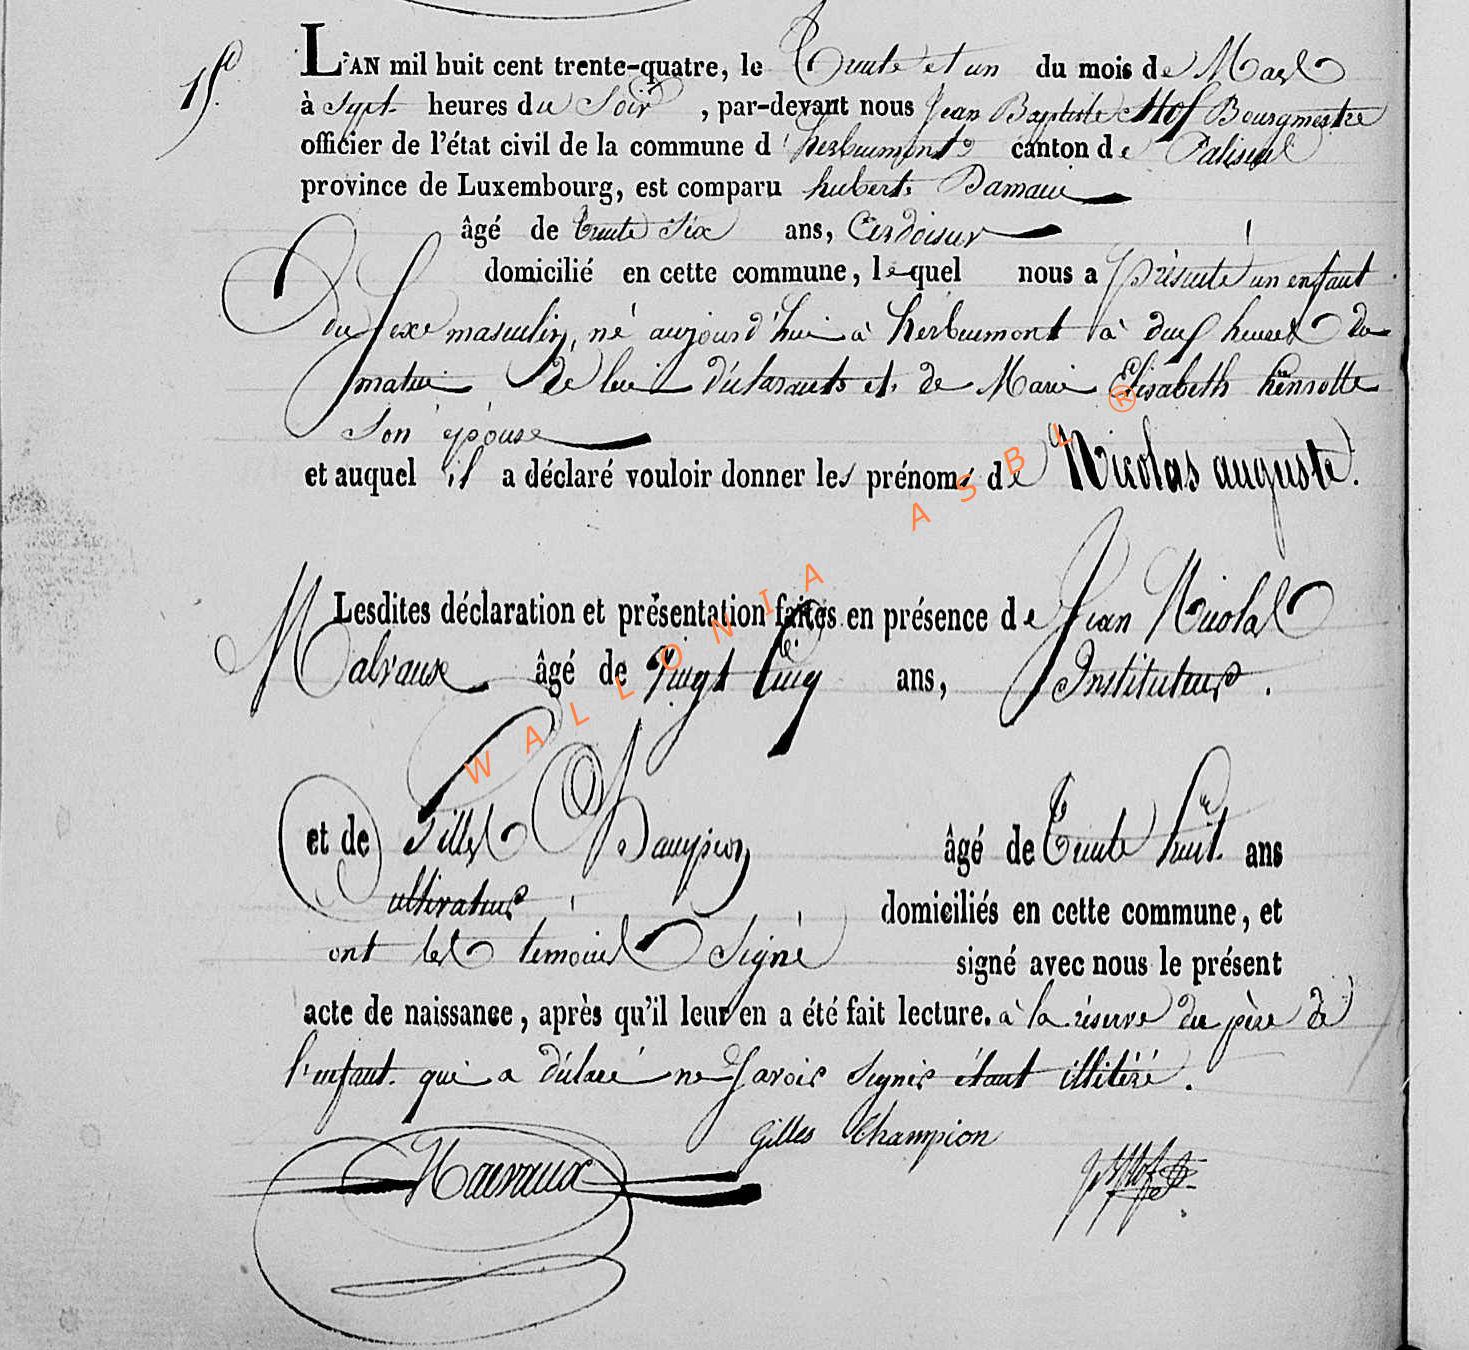 15.e
L'AN mil huit cent trente-quatre, le Trente et un du mois de Mars
à Sept heures du Soir, par-devant nous Jean Baptiste Hof Bourgmestre
officier de l'état civil de la commune d'herbeumont canton de Paliseul
province de Luxembourg, est comparu hubert Damain
âgé de trente Six ans, Ardoiseur
domicilié en cette commune, lequel nous a présenté un enfant
du Sexe masculin, né aujourd'hui à herbeumont à deux heures du
matin de lui déclarants et de Marie Elisabeth henrotte
Son épouse
et auquel il a déclaré vouloir donner les prénoms de Nicolas auguste.
Lesdites déclaration et présentation faites en présence de Jean Nicolas
Malvaux âgé de Vingt Cinq ans, Instituteur.
et de Gilles Champion âgé de Trente huit ans
Cultivateur domiciliés en cette commune, et
ont les témoins Signé signé avec nous le présent
acte de naissance, après qu'il leur en a été fait lecture. à la réserve du père de
l'enfant qui a déclaré ne Savoir Signer étant illitéré.
Gilles Champion
WALLONIA ASBL ®